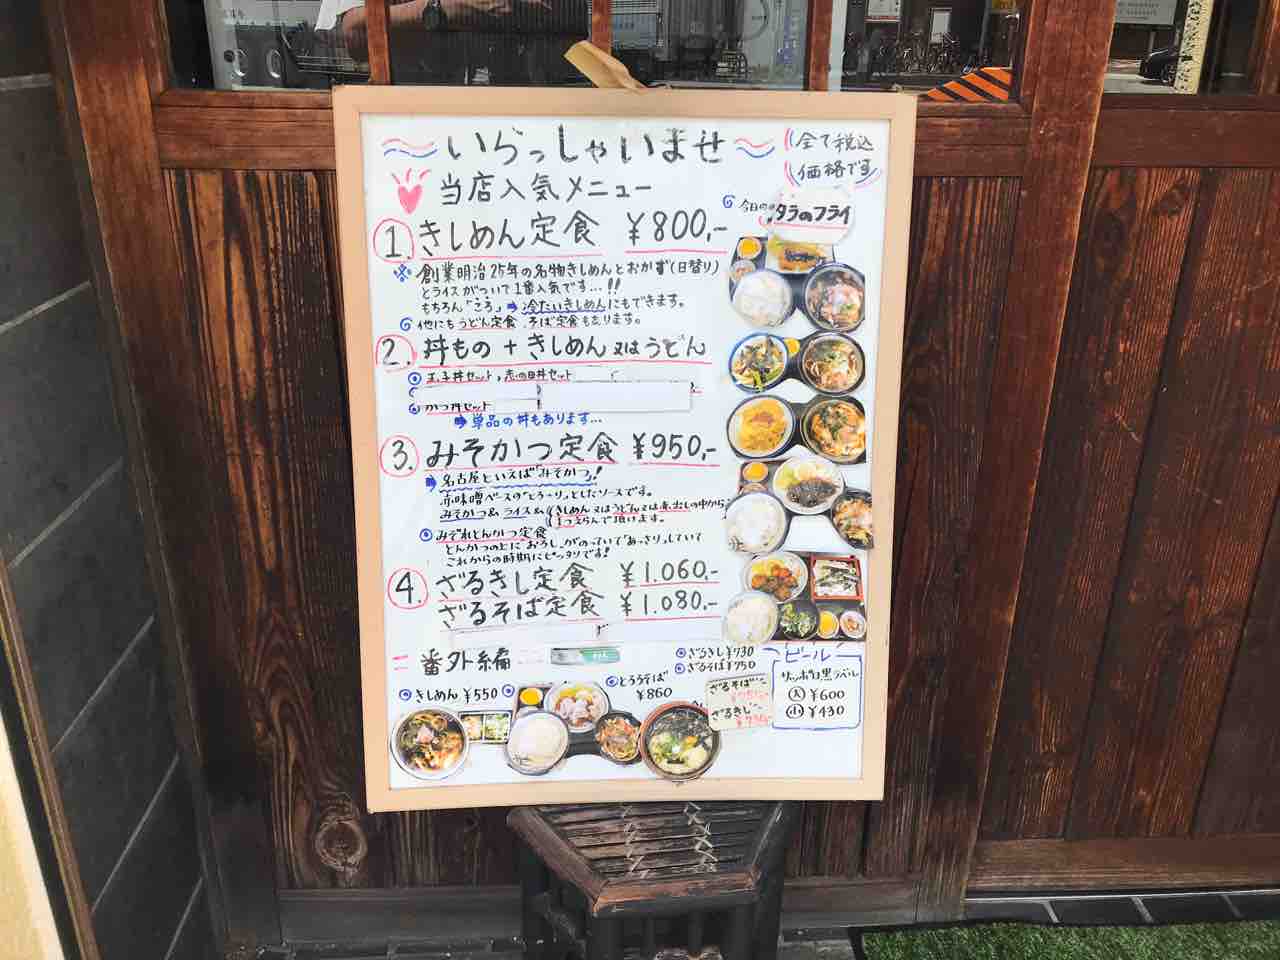 いらっしゃいませ
全て税込
価格です
当店人気メニュー
今日の
タラのフライ
1. きしめん定食 ¥800,-
※ 創業明治25年の名物きしめんとおかず(日替り)
とライスがついて1番人気です…!!
もちろん「ころ」➡冷たいきしめんにもできます。
他にもうどん定食、そば定食もあります。
2. 丼もの + きしめん又はうどん
◎玉子丼セット、志の田丼セット
◎かつ丼セット
➡単品の丼もあります…
3. みそかつ定食 ¥950,-
➡名古屋といえば「みそかつ」!
赤味噌ベースの"とろ〜り"としたソースです。
みそかつ&ライス&(きしめん又はうどん又は煮出しの中から
1つえらんで頂けます。
◎みぞれとんかつ定食
とんかつの上に"おろし"がのっていて"あっさり"していて
これからの時期にピッタリです!
4. ざるきし定食 ¥1.060,-
ざるそば定食 ¥1.080,-
= 番外編
◎ざるきし¥730
◎ざるそば¥750
◎きしめん ¥550
◎とろろそば
¥860
ざるそば
ざるきし
ビール
サッポロ黒ラベル
大 ¥600
小 ¥430